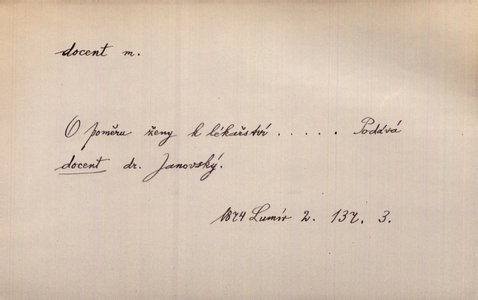 docent m.
O poměru ženy k lékařství ..... Podává
docent dr. Janovský.
1874 Lumír 2. 137. 3.